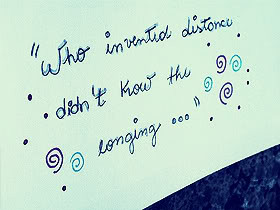 "Who invented distance
didn't know the
longing ..."